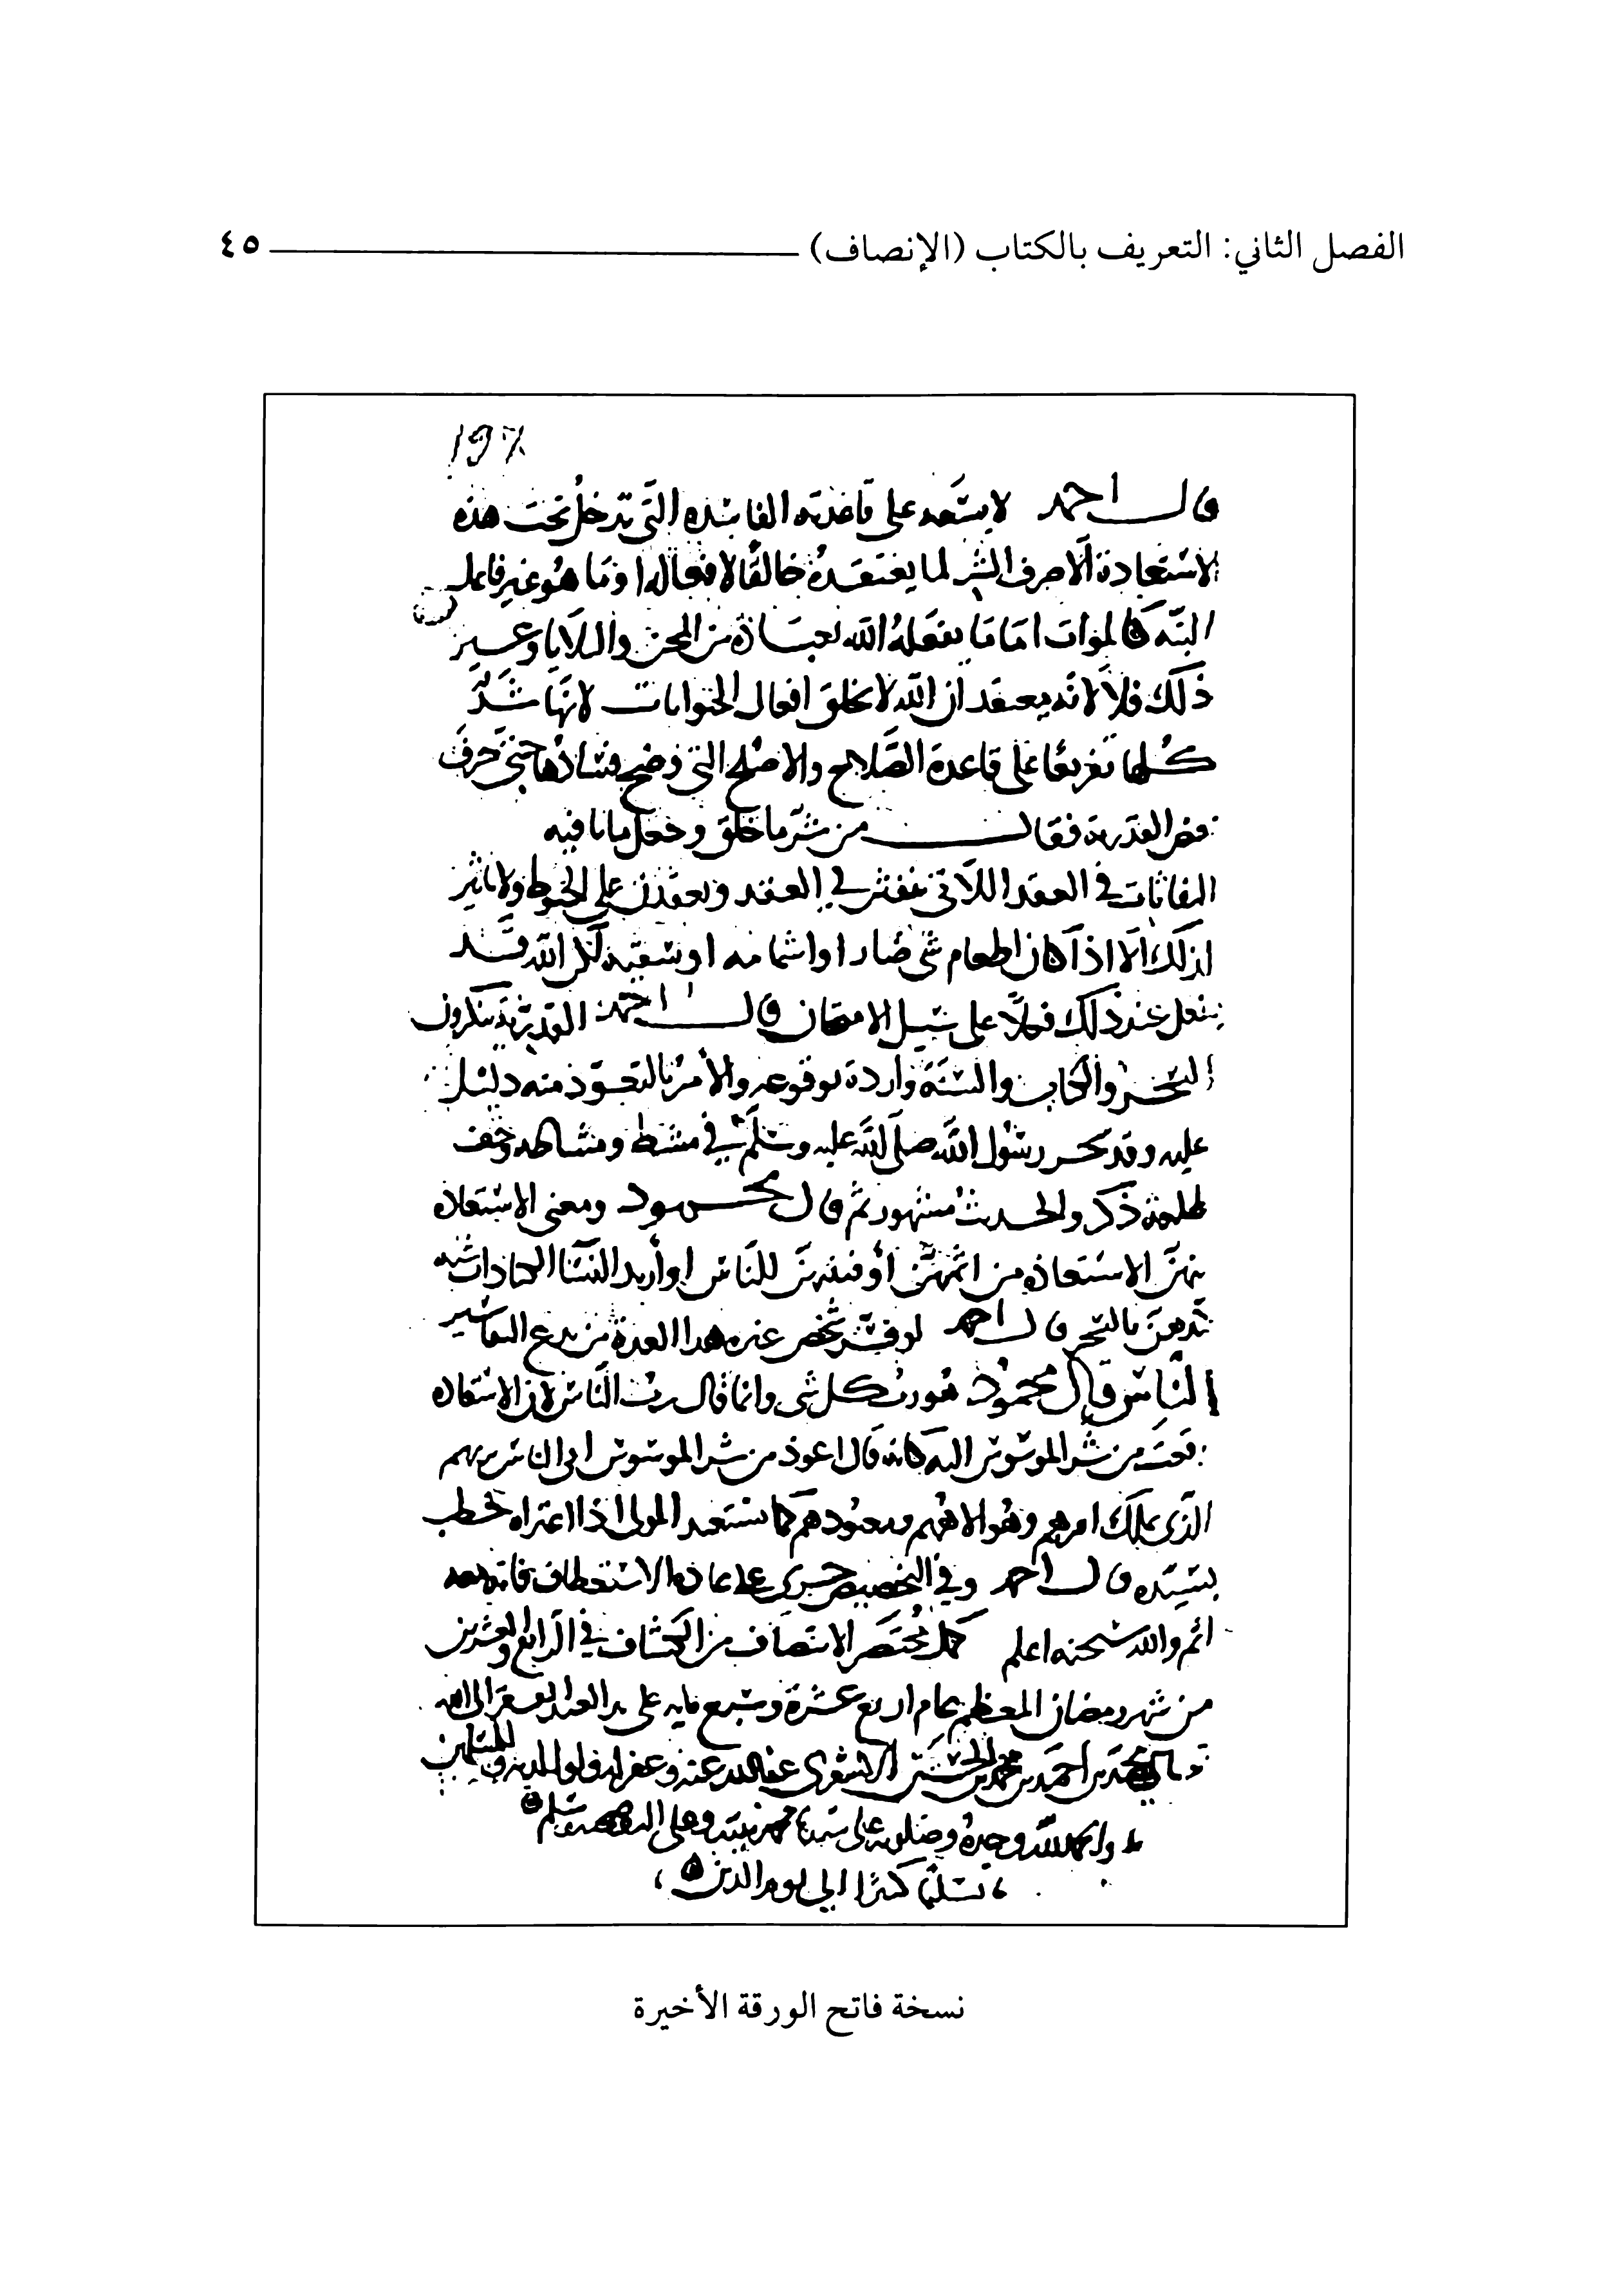 الفصل الثاني: التعريف بالكتاب (الإنصاف) ٤٥
قال احمد لا يستعيد على قاعدته الفاسده التي تدخل تحت هذه
الاستعاذة الا صرف الشر لما يعتقده خالقا لافعاله او ما هو غير فاعل
البته كالموات اما ما يفعله الله بعباده من المحن والبلايا وغير
ذلك فلا لانه يعتقد ان الله لا يخلق افعال الحيوانات لانها شر
كلها تفريعا على قاعدة الصلاح والاصلح التي وضح فسادها حتى حرف
بعض القدرية فقال من شر ما خلق وجعل ما نافيه
النفاثات في العقد اللاتي ينفثن في العقد ويعقدن على الخيوط ولا تاثير
لذلك الا اذا كان اطعام شي ضار او اشمامه او سقيه لكن الله قد
يفعل عند ذلك فعلا على سبيل الامتحان قال احمد القدرية ينكرون
السحر والكتاب والسنة واردة بوقوعه والأمر بالتعوذ منه دليل
عليه وقد سحر رسول الله صلى الله عليه وسلم في مشط ومشاطه وجف
طلعة ذكر والحديث مشهور ثم قال محمود ومعنى الاستعاذه
بهن الاستعاذه من اثمهن أو فتنتهن للناس او أريد النسا الكيادات شبه
كيدهن بالسحر قال احمد لو فسر غيره هذا لعده من بدع التفاسير
الناس قال محمود هو رب كل شي وانما قال رب الناس لان الاستعاذه
وقعت من شر الموسوس اليه كانه قال اعوذ من شر الموسوس الى الناس بربهم
الذي يملك امرهم وهو الاههم ومعبودهم كما يستعيد المولى اذا اعتراه خطب
بسيده قال احمد وفي التخصيص جرى على عادة الاستعطاف فانه معه
اتم والله سبحنه اعلم كمل مختصر الانتصاف من الكشاف في الرابع والعشرين
من شهر رمضان المعظم عام اربع عشرة وسبع مايه على يد العبد الفقير الى الله
تعالى محمد بن احمد بن محمد بن عفا الله عنه وغفر له ولوالديه وللمسلمين
والحمد لله وحده وصلوته على سيدنا محمد نبيه وعلى اله وصحبه وسلم
تسليما كثيرا الى يوم الدين
نسخة فاتح الورقة الأخيرة